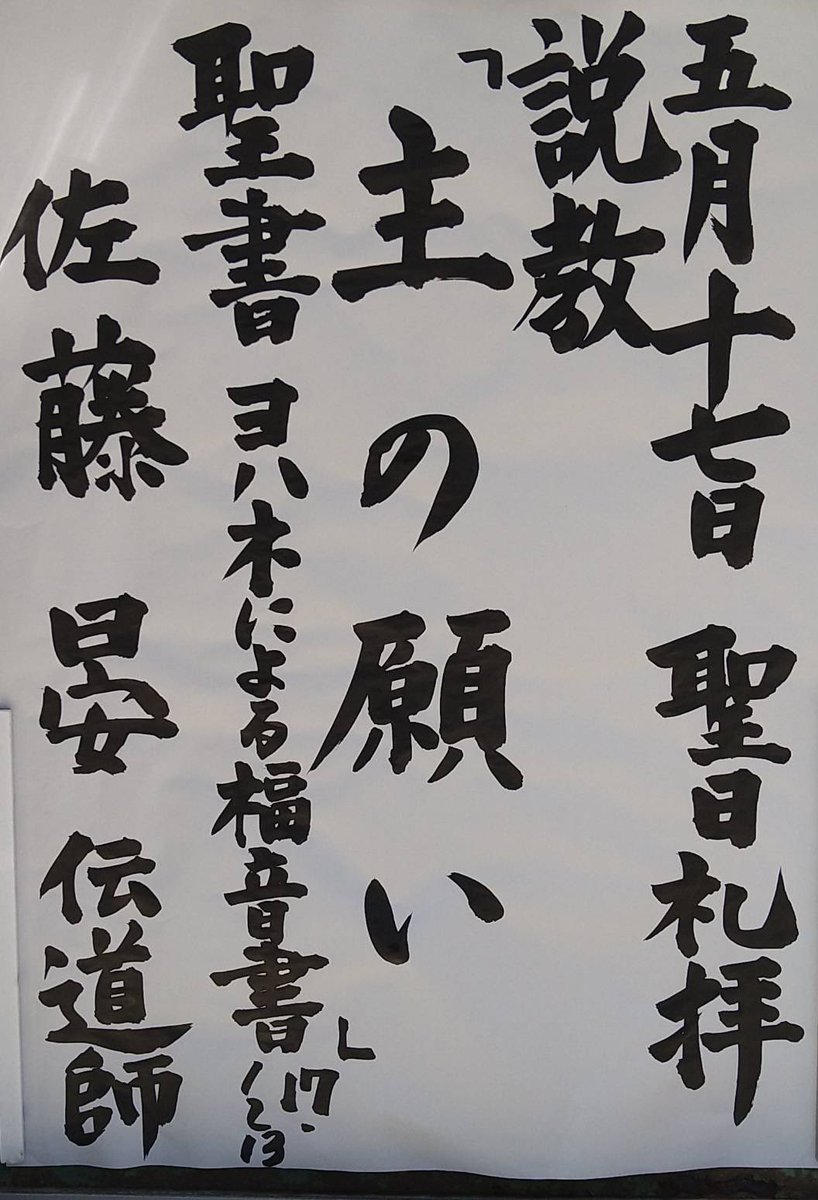 五月十七日 聖日礼拝
説教
「主の願い」
聖書 ヨハネによる福音書 17・1~13
佐藤 晏 伝道師